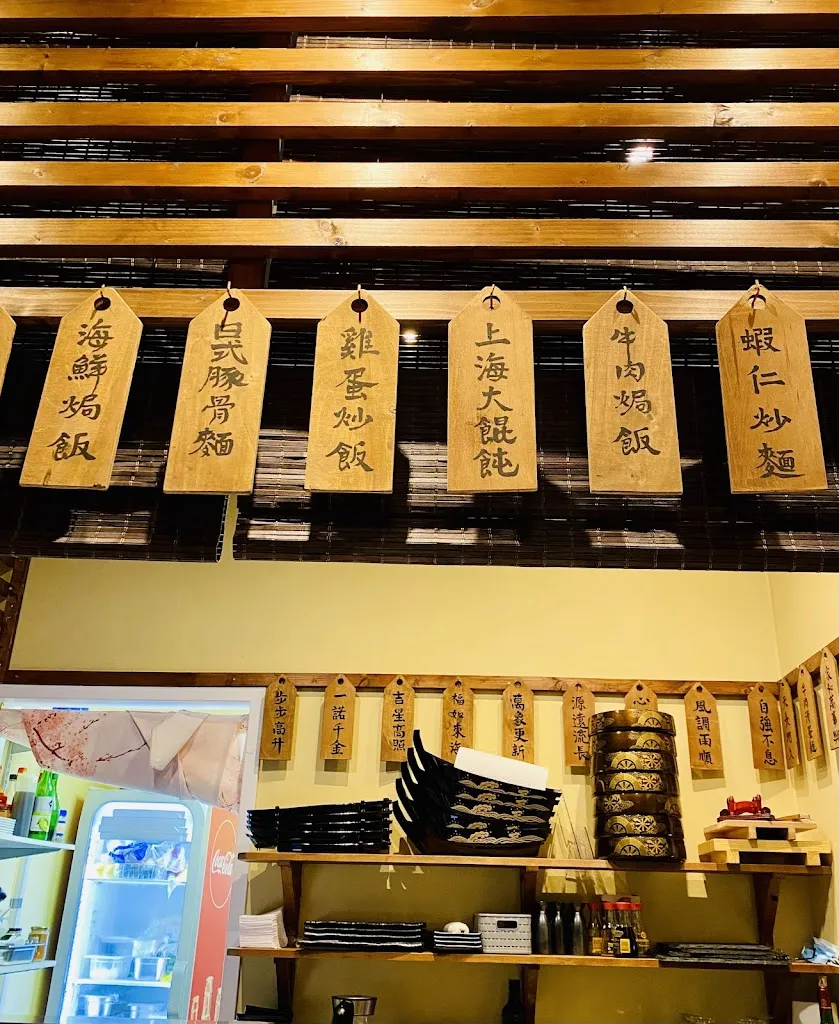 海鮮焗飯
日式豚骨麵
雞蛋炒飯
上海大餛飩
牛肉焗飯
蝦仁炒麵
步步高升
一諾千金
吉星高照
福如東海
萬象更新
源遠流長
心
風調雨順
自強不息
Coca-Cola